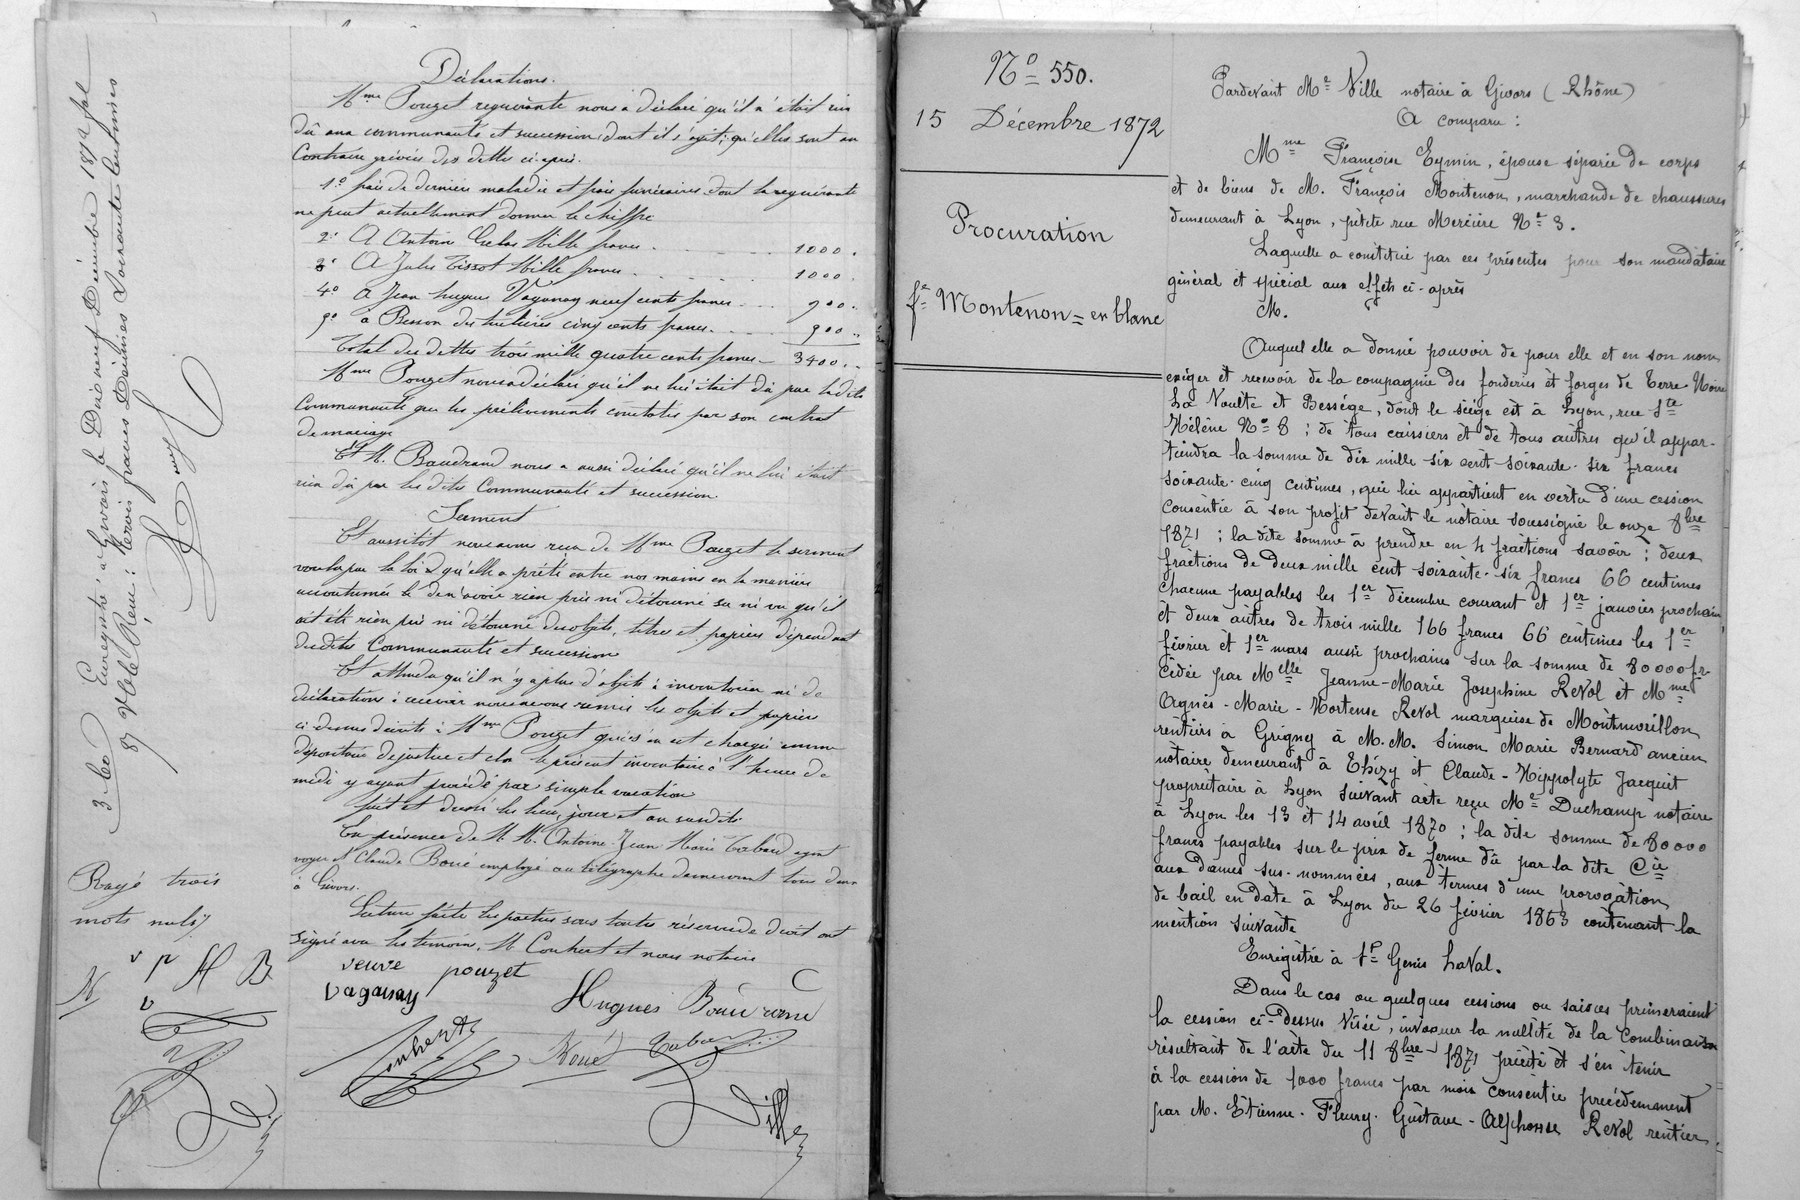 Déclarations.
Mme Pouzet requérante nous a déclaré qu'il n'était rien
dû aux communauté et succession dont il s'agit; qu'elles sont au
Contraire grévées des dettes ci-après.
1o frais de dernière maladie et frais funéraires dont la requérante
ne peut actuellement donner le chiffre
2o A Antoine Mille francs 1000.
3o A Jules Tissot Mille francs 1000.
4o A Jean hugues Vaganay neuf cents francs 900.
5o à Besson des cinq cents francs. 500
Total des dettes trois mille quatre cents francs 3400.
Mme Pouzet nous a déclaré qu'il ne lui était dû par ladite
Communauté que les prélèvements constatés par son contrat
de mariage
Et M. Baudrand nous a aussi déclaré qu'il ne lui était
rien dû par les dites Communauté et succession.
Serment
Et aussitôt nous avons reçu de Mme Pouzet le serment
voulu par la loi & qu'elle a prêté entre nos mains en la manière
accoutumée de n'avoir rien pris ni détourné su ni vu qu'il
ait été rien pris ni détourné des objets, titres et papiers dépendant
desdites Communauté et succession
Et attendu qu'il n'y a plus d'objets à inventorier ni de
déclarations à recevoir nous avons remis les objets et papiers
ci-dessus décrits à Mme Pouzet qui s'en est chargée comme
dépositaire de justice et clos le présent inventaire à l'heure de
midi y ayant procédé par simple vacation
fait et dressé les lieu, jour et an susdits
En présence de M. M. Antoine Jean Marie Tabard agent
voyer et Claude Boué employé au télégraphe demeurant tous deux
à Givors.
Lecture faite les parties sous toutes réserves de droit ont
signé avec les témoins, M. Couhert et nous notaire
veuve pouzet
vaganay Hugues
Couhert Boué Tabard
Ville
Enregistré à Givors le Dix neuf Décembre 1872 fol
87 Vo Cle
Rayé trois
mots nuls
v p H B
No 550.
15 Décembre 1872
Procuration
fe Montenon = en blanc
Pardevant Me Ville notaire à Givors (Rhône)
A comparu :
Mme Françoise Eymin, épouse séparée de corps
et de biens de M. François Montenon, marchande de chaussures
demeurant à Lyon, petite rue Mercière No 3.
Laquelle a constitué par ces présentes pour son mandataire
général et spécial aux effets ci-après
M.
Auquel elle a donné pouvoir de pour elle et en son nom
exiger et recevoir de la compagnie des fonderies et forges de Terre-Noire
La Voulte et Bessége, dont le siège est à Lyon, rue Ste
Hélène No 8 ; de tous caissiers et de tous autres qu'il appar-
tiendra la somme de dix mille six cent soixante-six francs
soixante-cinq centimes, qui lui appartient en vertu d'une cession
consentie à son profit devant le notaire soussigné le onze 8bre
1871 ; la dite somme à prendre en 4 fractions savoir : deux
fractions de deux mille cent soixante-six francs 66 centimes
chacune payables les 1er décembre courant et 1er janvier prochain,
et deux autres de trois mille 166 francs 66 centimes les 1er
février et 1er mars aussi prochains sur la somme de 80000 fr
cédée par Melle Jeanne-Marie Josephine Revol et Mme
Agnès-Marie-Hortense Revol marquise de Montmorillon
rentiers à Grigny à M.M. Simon Marie Bernard ancien
notaire demeurant à Thizy et Claude-Hippolyte Jacquet
propriétaire à Lyon suivant acte reçu Me Duchamp notaire
à Lyon les 13 et 14 avril 1870 ; la dite somme de 80000
francs payables sur le prix de ferme dû par la dite Cie
aux dames sus-nommées, aux termes d'une prorogation
de bail en date à Lyon du 26 février 1863 contenant la
mention suivante
Enregistré à St Genis Laval.
Dans le cas ou quelques cessions ou saisies primeraient
la cession ci-dessus visée, invoquer la nullité de la Combinaison
résultant de l'acte du 11 8bre 1871 précité et s'en tenir
à la cession de 1000 francs par mois consentie précédemment
par M. Etienne-Fleury-Gustave-Alphonse Revol rentier